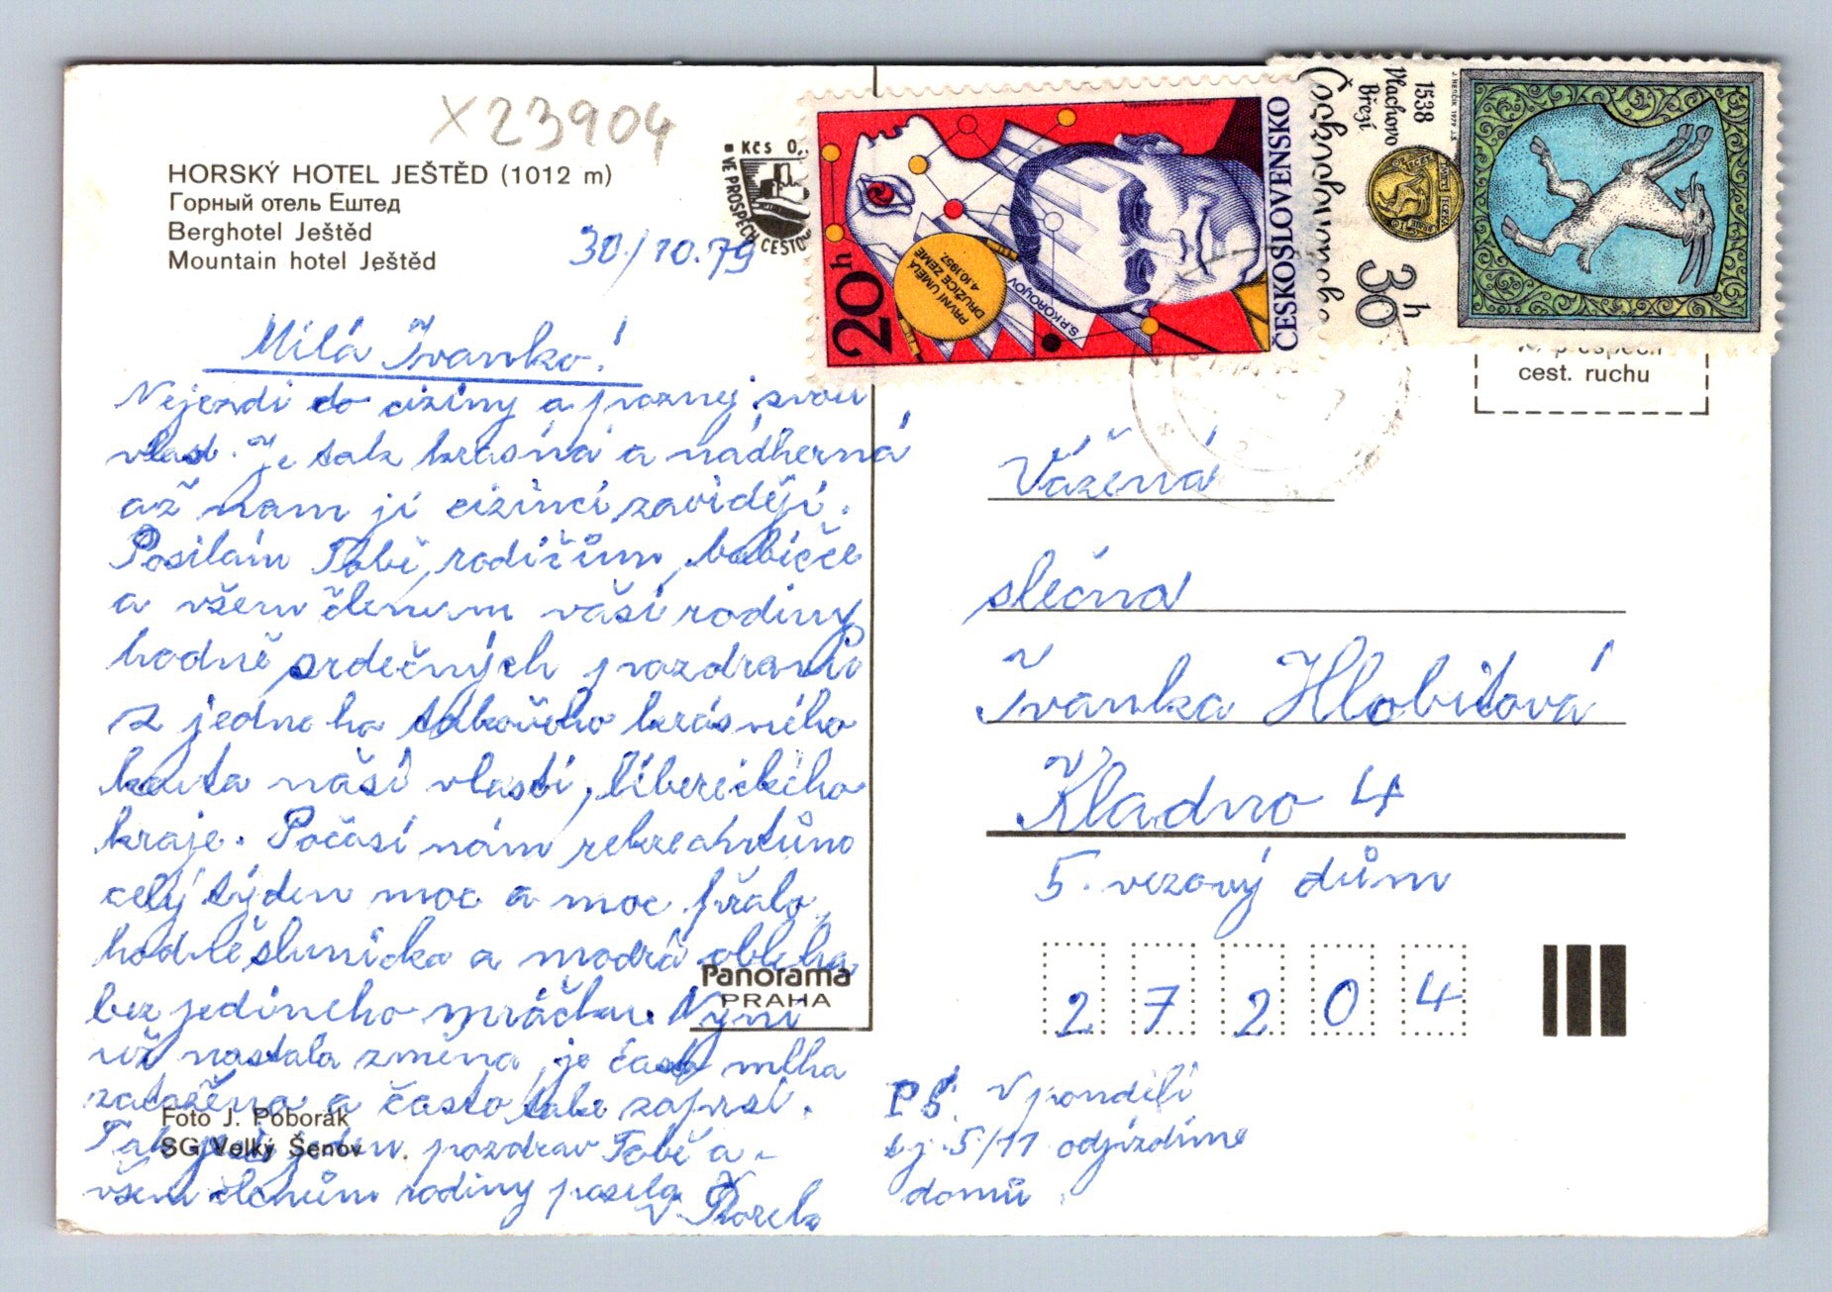 X23904
HORSKÝ HOTEL JEŠTĚD (1012 m)
Горный отель Ештед
Berghotel Ještěd
Mountain hotel Ještěd
30/10.79
Kčs 0,
VE PROSPĚCH CESTO
20h
PRVNÍ UMĚLÁ
DRUŽICE ZEMĚ
4.10.1957
S.P.KOROLJOV
ČESKOSLOVENSKO
Československo
1538
Vlachovo
Březí
30h
cest. ruchu
Milá Ivanko!
Nejezdi do ciziny a poznej svou
vlast. Je tak krásná a nádherná
až nam jí cizinci zavidějí.
Posilám Tobě, rodičům, babičce
a všem členum vaši rodiny
hodně srdečných pozdravů
z jednoho takového krásného
kouta naší vlasti, libereckého
kraje. Počasí nám rekreantům
celý týden moc a moc přálo,
hodně slunička a modrá obloha
bez jediného mráčku. Nyní
už nastala změna, je často mlha
zataženo a často také zaprší.
Tak jeden pozdrav Tobě a
všem členům rodiny posila
Panorama
PRAHA
Foto J. Poborák
SG Velký Šenov
Vážená
slečna
Ivanka Hlobilová
Kladno 4
5. vezový dům
27204
PS. V pondělí
tj 5/11 odjíždíme
domů